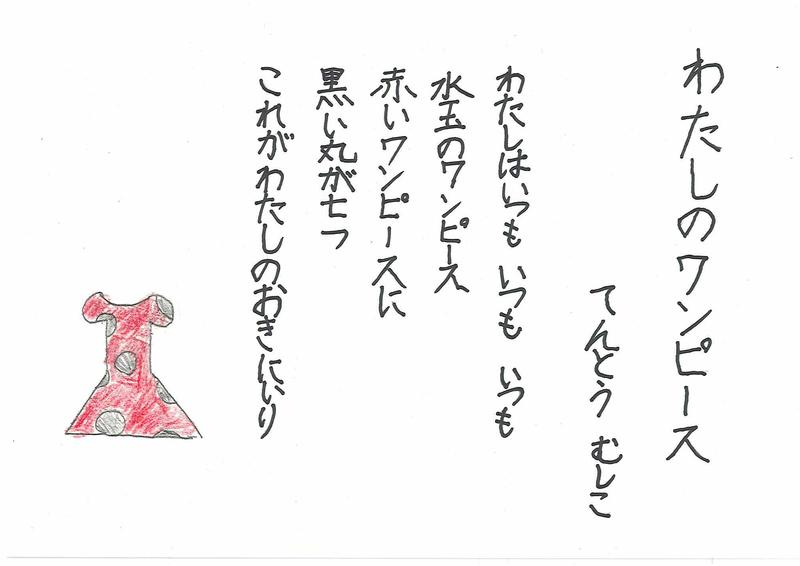 わたしのワンピース
てんとう むしこ
わたしはいつも いつも いつも
水玉のワンピース
赤いワンピースに
黒い丸が七つ
これがわたしのおきにいり